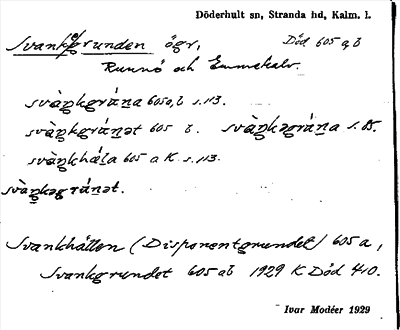 Döderhult sn, Stranda hd, Kalm. l.
Svankegrunden ögr, Död 605 a, b
Runnö och Emmekalv.
svàŋkgrúṇa 605 a, b s. 113.
svàŋkgrúṇət 605 b. svàŋkəgrúṇa s. 85.
svàŋkháḷa 605 a K s. 113.
svàŋkəgrúṇət.
Svankhällen (Disponentgrundet) 605 a,
Svankgrundet 605 ab 1929 K Död 40.
Ivar Modéer 1929